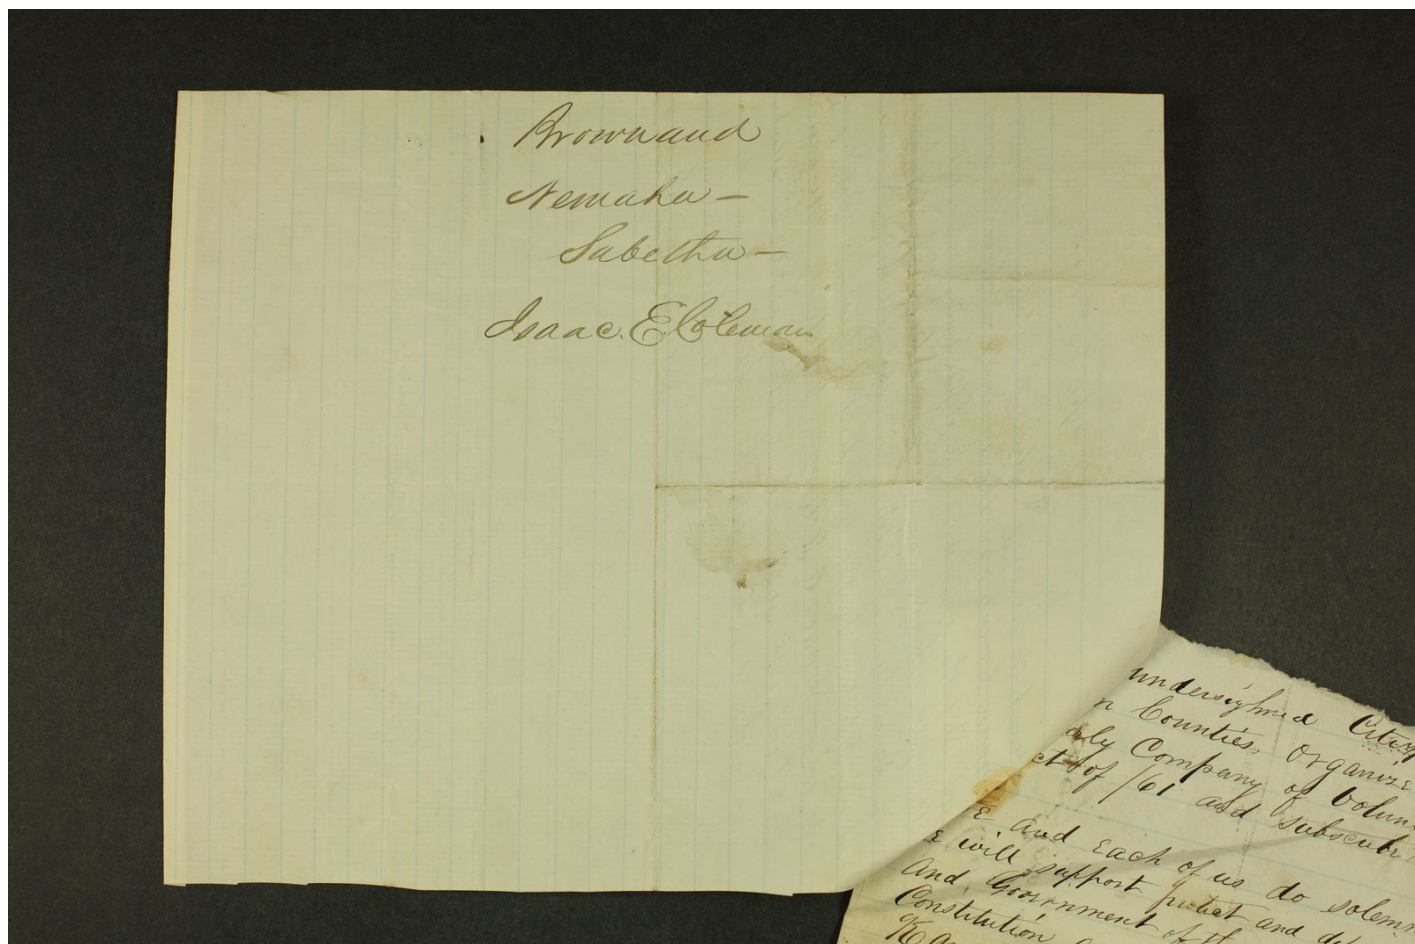 Brown and
Nemaha —
Sabetha —
Isaac. E Coleman
undersighned Citiz
n Counties, Organize
Company of Volun
ct of /61 and subscribe
E and Each of us do solemn
E will support protect and d
and Government of th
Constitution
Ka